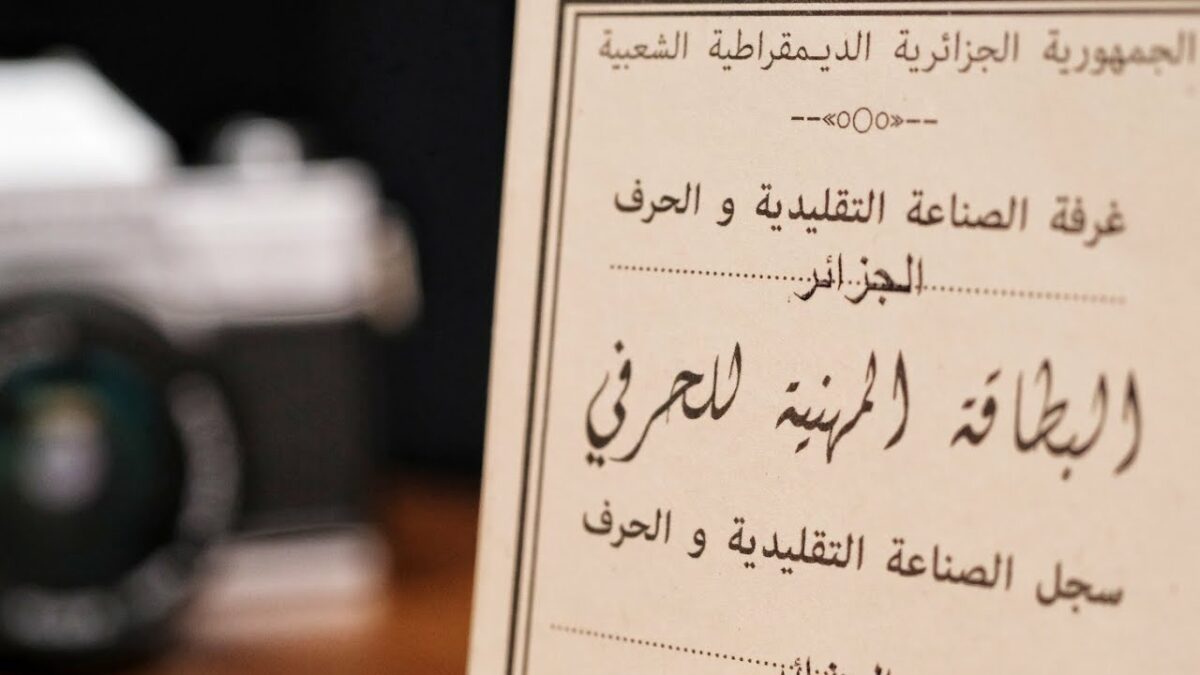 الجمهورية الجزائرية الديـمقراطية الشعبية
غرفة الصناعة التقليدية و الحرف
الجزائر
البطاقة المهنية للحرفي
سجل الصناعة التقليدية و الحرف